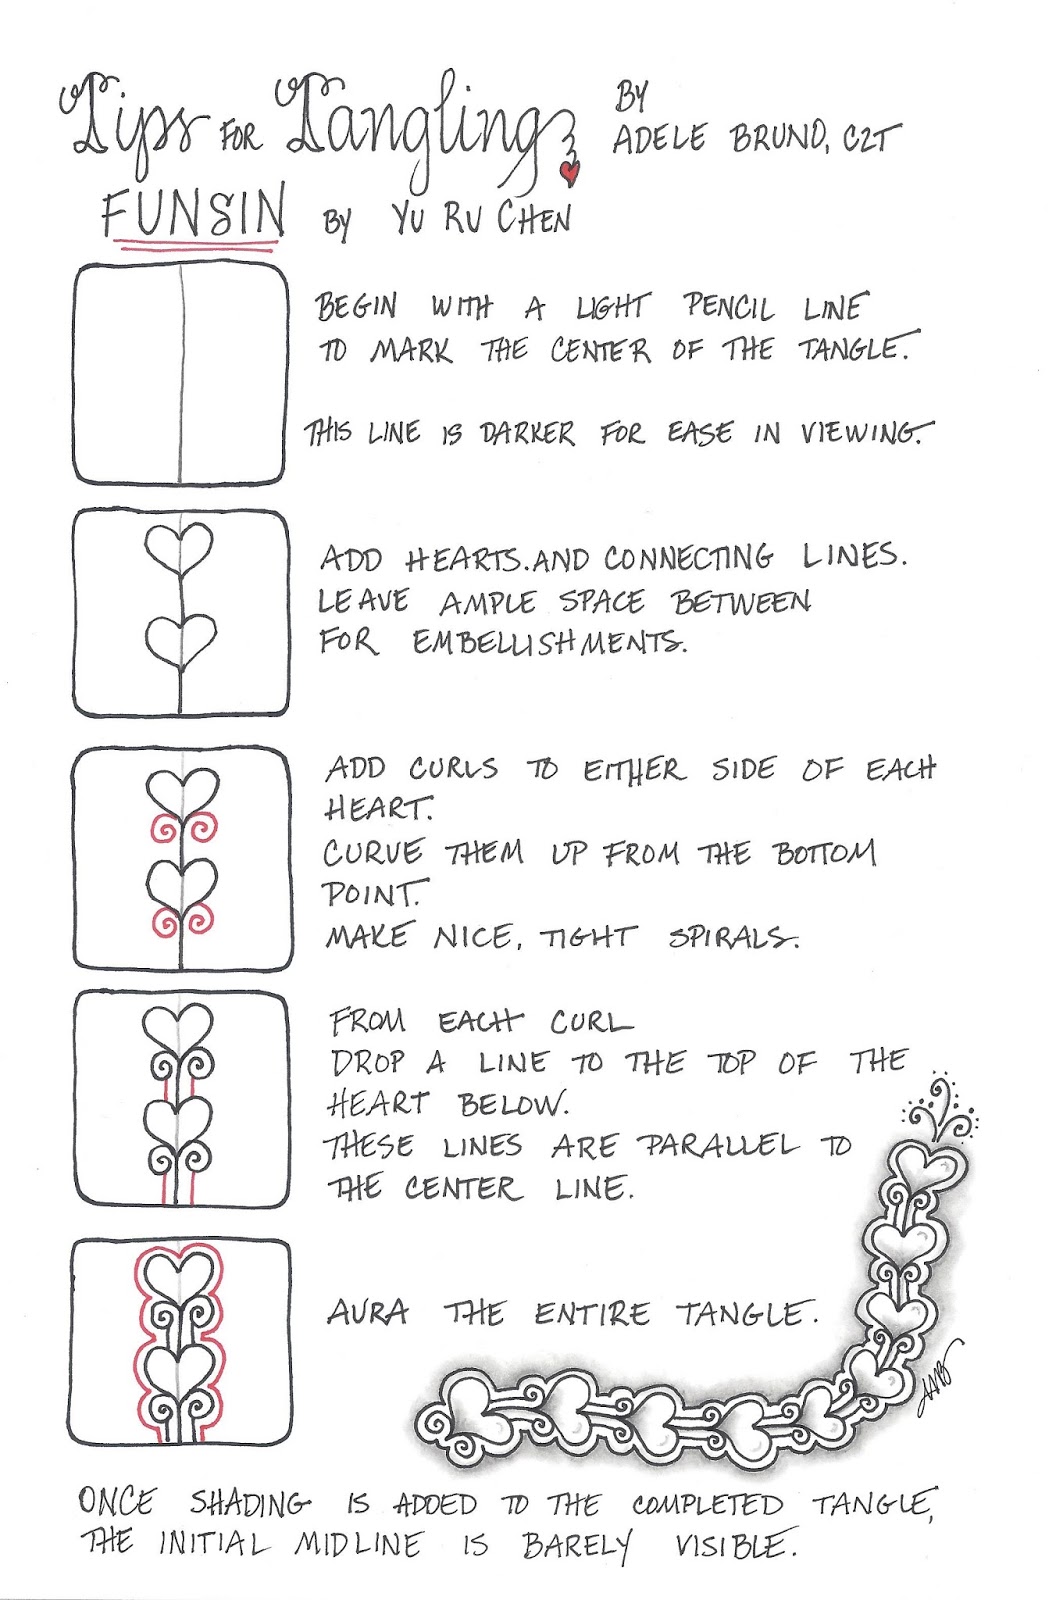 Tips FOR Tangling BY
ADELE BRUNO, CZT
FUNSIN BY YU RU CHEN
BEGIN WITH A LIGHT PENCIL LINE
TO MARK THE CENTER OF THE TANGLE.
THIS LINE IS DARKER FOR EASE IN VIEWING.
ADD HEARTS.AND CONNECTING LINES.
LEAVE AMPLE SPACE BETWEEN
FOR EMBELLISHMENTS.
ADD CURLS TO EITHER SIDE OF EACH
HEART.
CURVE THEM UP FROM THE BOTTOM
POINT.
MAKE NICE, TIGHT SPIRALS.
FROM EACH CURL
DROP A LINE TO THE TOP OF THE
HEART BELOW.
THESE LINES ARE PARALLEL TO
THE CENTER LINE.
AURA THE ENTIRE TANGLE.
ONCE SHADING IS ADDED TO THE COMPLETED TANGLE,
THE INITIAL MIDLINE IS BARELY VISIBLE.